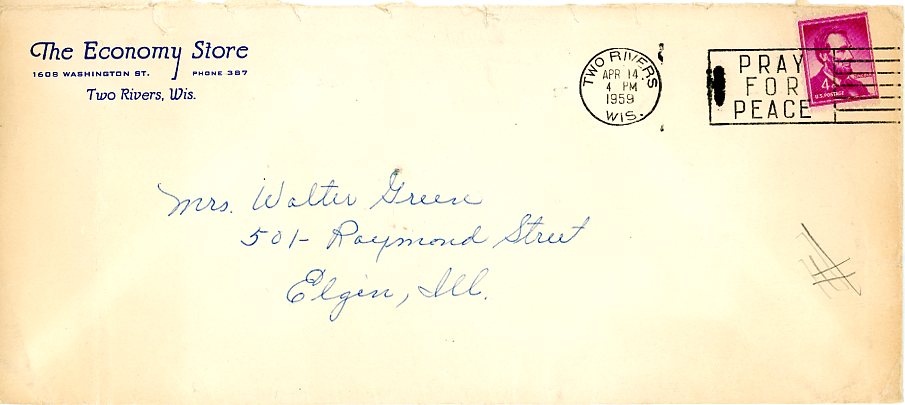 The Economy Store
1608 WASHINGTON ST. PHONE 387
Two Rivers, Wis.
TWO RIVERS
APR 14
4 PM
1959
WIS.
PRAY
FOR
PEACE
4¢
U.S. POSTAGE
Mrs. Walter Green
501- Raymond Street
Elgin, Ill.